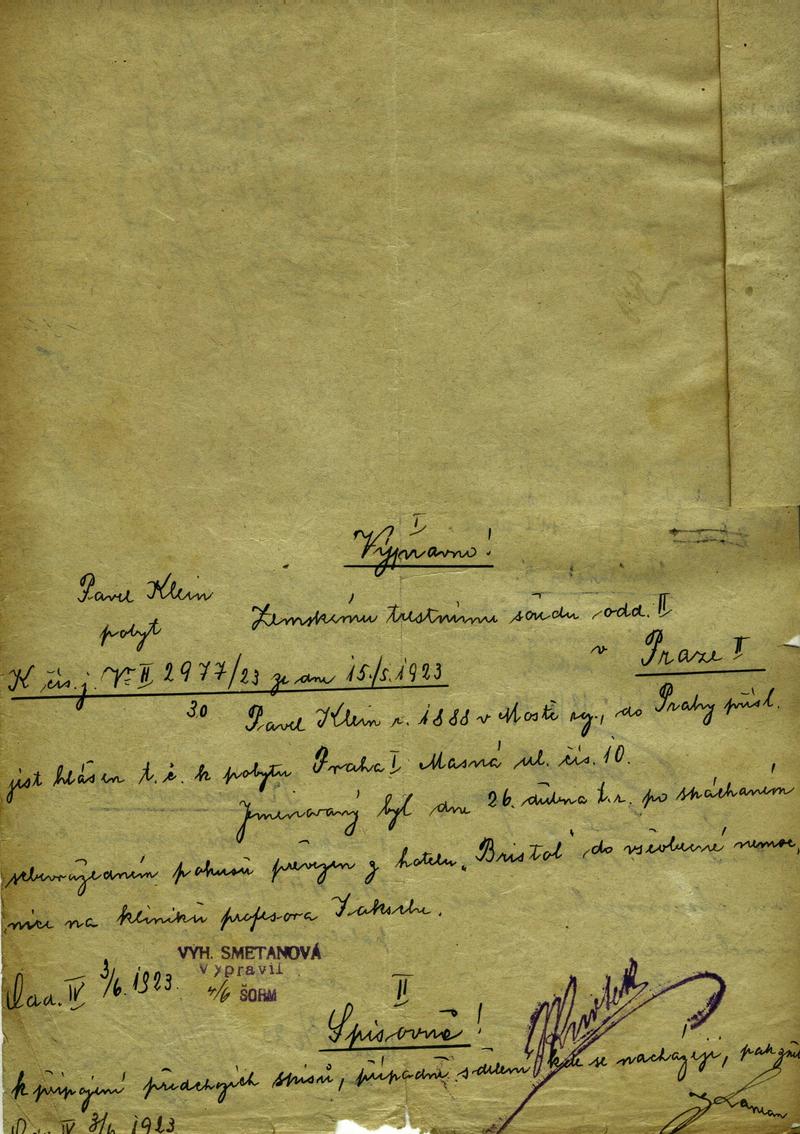 I
Výpravno!
Pavel Klein
pobyt
Zemskému trestnímu soudu odd. II
v Praze II
K čís. j. Vr II 2977/23 ze dne 15./5. 1923
30
Pavel Klein r. 1888 v Mostě, do Prahy přísl.
jest hlášen t. č. k pobytu Praha I Masná ul. čís. 10.
Jmenovaný byl dne 26. dubna t. r. po spáchaném
sebevražedném pokusu převezen z hotelu „Bristol" do všeobecné nemoc,
nice na kliniku profesora Jaksche.
Odd. IV 3/6. 1923.
VYH. SMETANOVÁ
vypravil
4/6 ŠORM
II
Spisovně!
k připojení předchozích spisů, případně sdělení kde se nacházejí, pak zpět
Odd. IV 3/6 1923